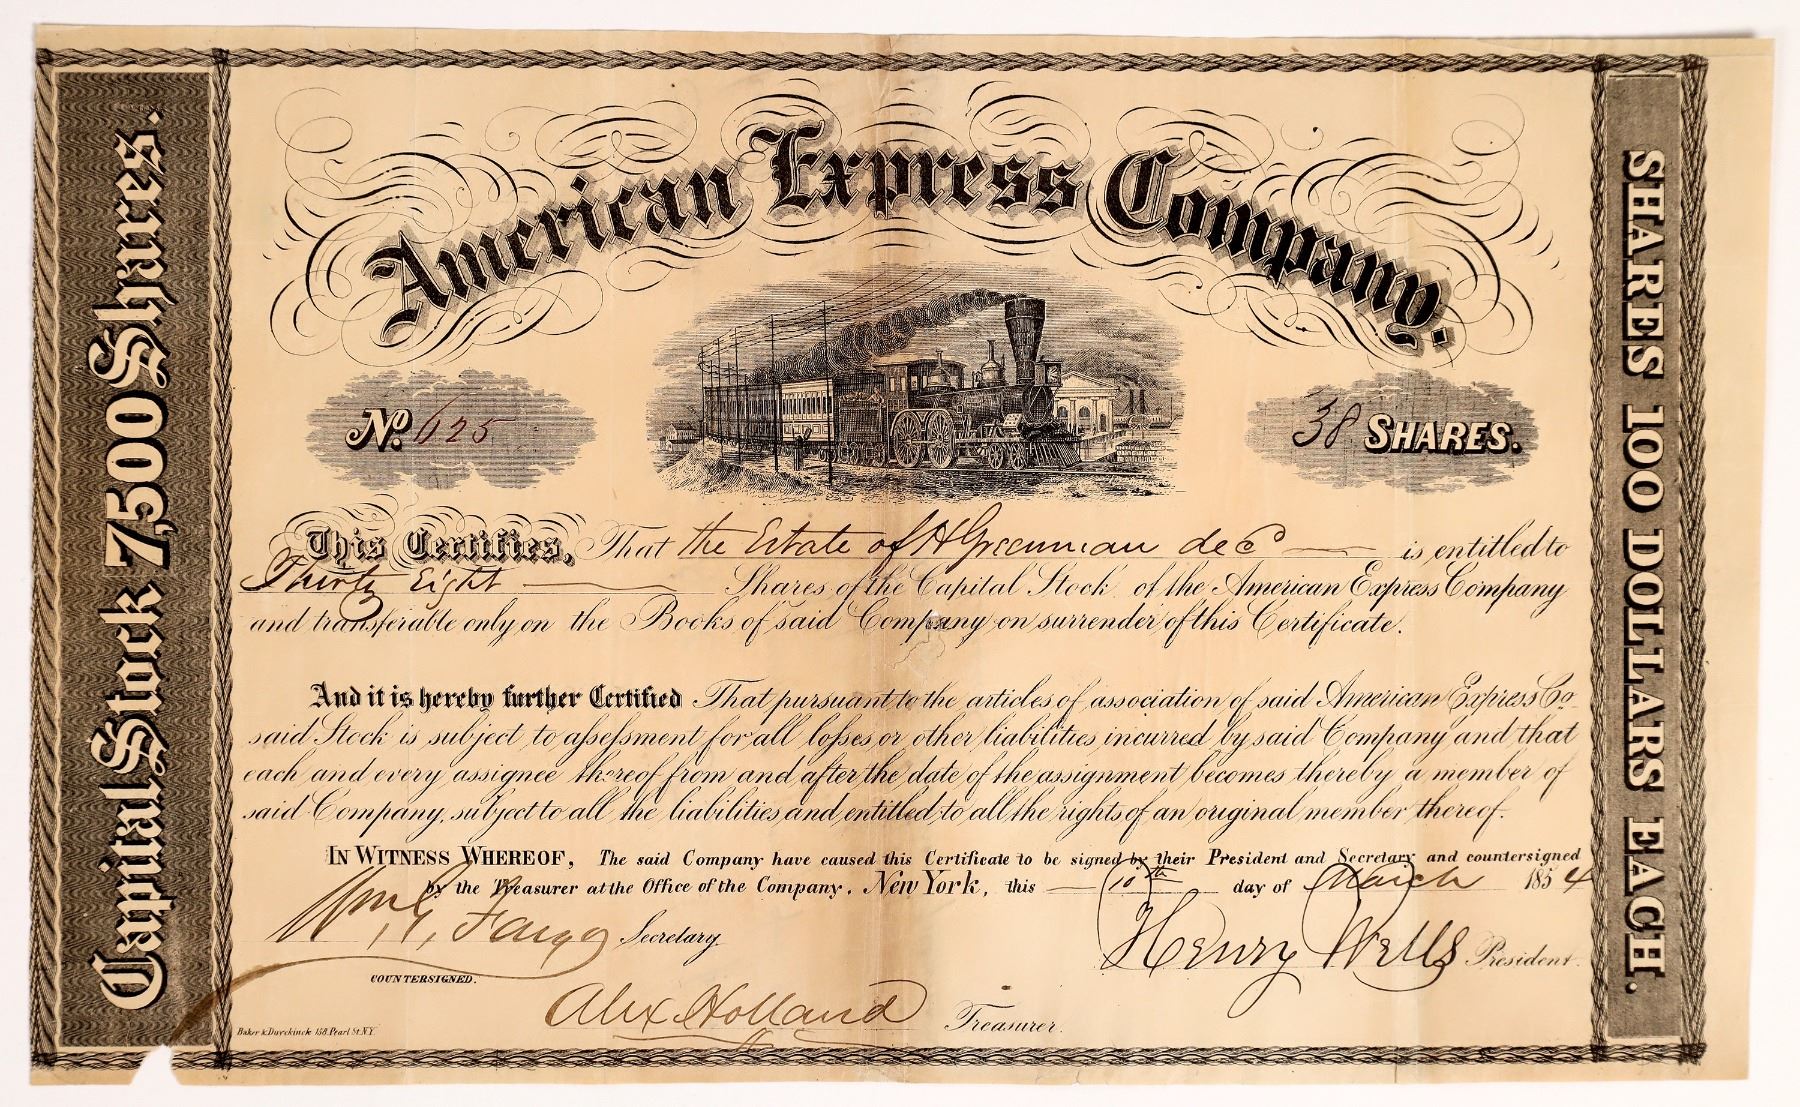 American Express Company.
Capital Stock 7,500 Shares.
SHARES 100 DOLLARS EACH.
No. 625
38 SHARES.
This Certifies, That the Estate of H Greenman decd is entitled to
Thirty Eight Shares of the Capital Stock of the American Express Company
and transferable only on the Books of said Company on surrender of this Certificate.
And it is hereby further Certified That pursuant to the articles of association of said American Express Co.
said Stock is subject to assessment for all losses or other liabilities incurred by said Company and that
each and every assignee thereof from and after the date of the assignment becomes thereby a member of
said Company, subject to all the liabilities and entitled to all the rights of an original member thereof.
IN WITNESS WHEREOF, The said Company have caused this Certificate to be signed by their President and Secretary and countersigned
by the Treasurer at the Office of the Company. New York, this 10th day of March 1854
Wm. G. Fargo Secretary.
Henry Wells President.
COUNTERSIGNED.
Alex Holland Treasurer.
Baker & Duyckinck 158 Pearl St. N.Y.